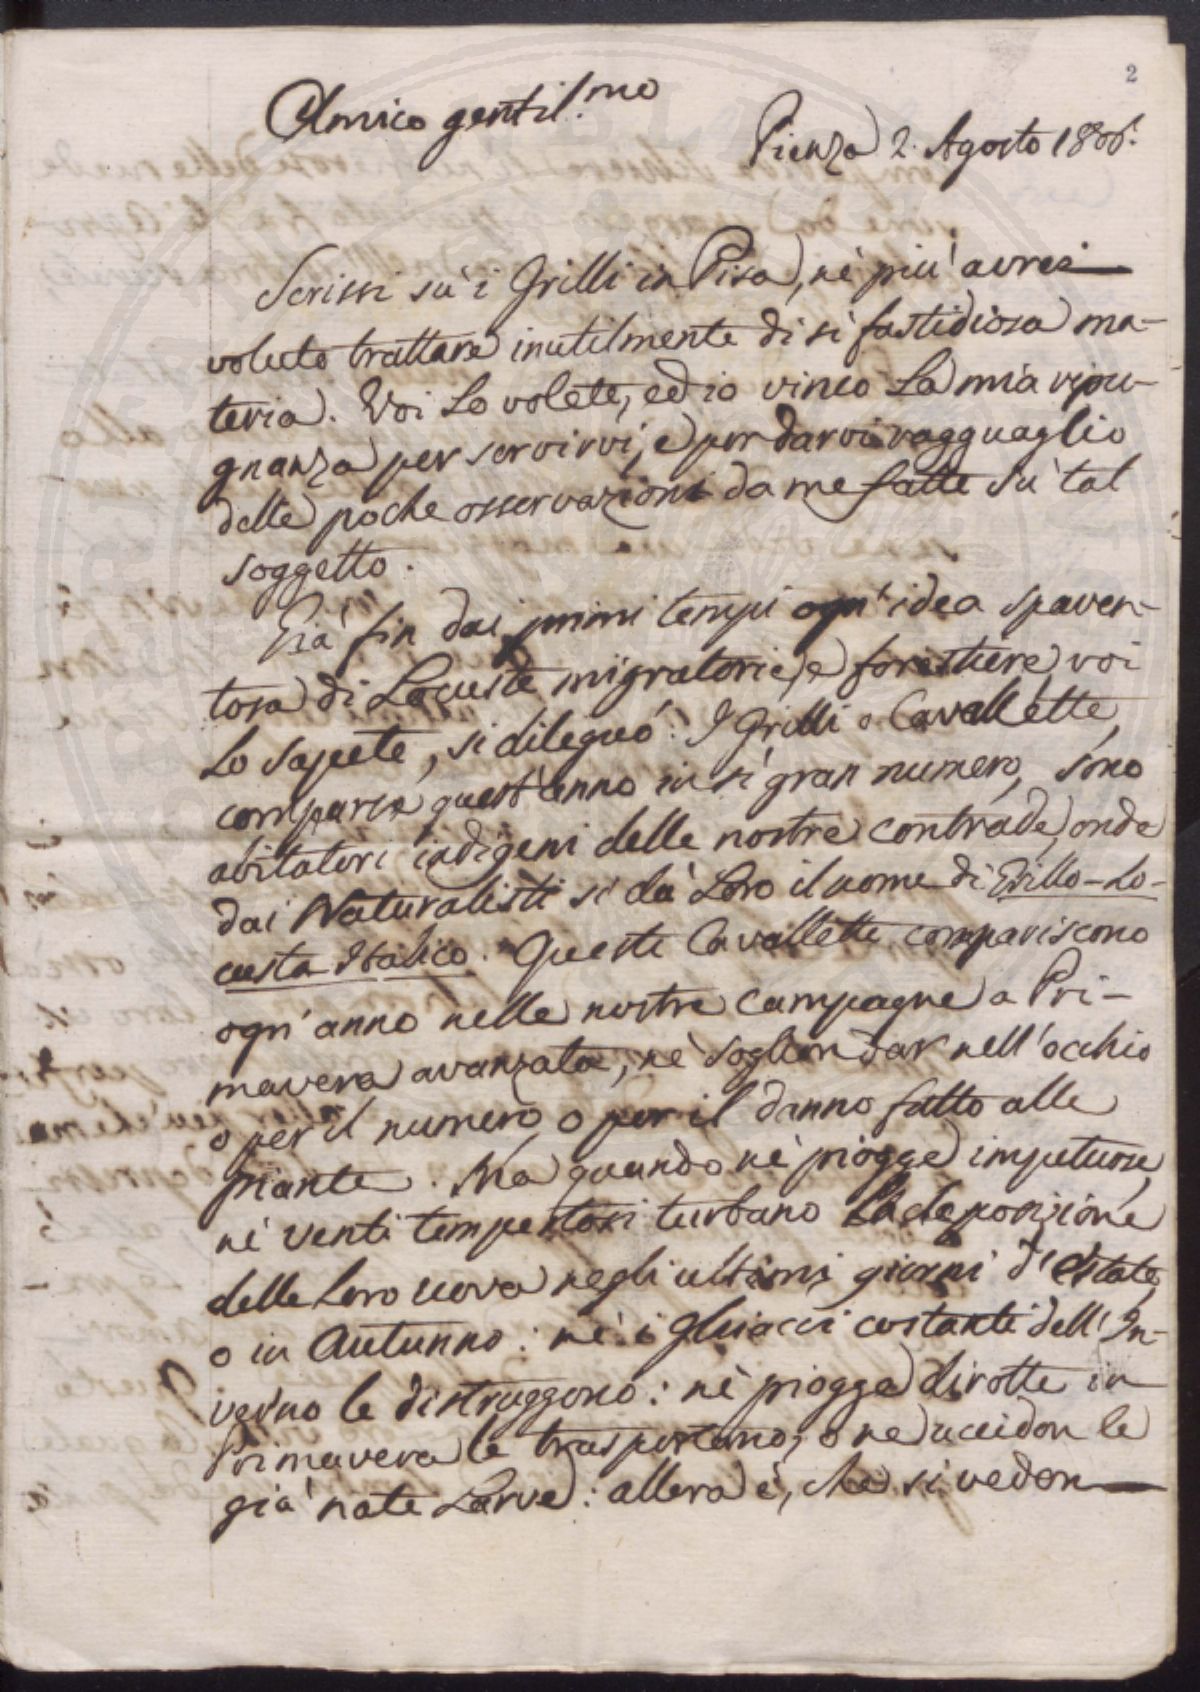 2
Amico gentil.mo
Pienza 2. Agosto 1806.
Scrissi sù i Grilli in Pisa, nè più avrei
voluto trattare inutilmente di sì fastidiosa ma-
teria. Voi Lo volete, ed io vinco La mia repu-
gnanza per servirvi, e per darvi ragguaglio
delle poche osservazioni da me fatte sù tal
soggetto.
Già fin dai primi tempi ogn'idea spaven-
tosa di Locuste migratorie, e forestiere, voi
Lo sapete, si dileguò. I Grilli o Cavallette,
comparse quest'anno in sì gran numero, sono
abitatori indigeni delle nostre contrade, onde
dai Naturalisti si dà Loro il nome di Grillo-Lo-
custa Italico. Queste Cavallette compariscono
ogn'anno nelle nostre campagne a Pri-
mavera avanzata, nè soglion dar nell'occhio
o per il numero, o per il danno fatto alle
piante. Ma quando nè piogge impetuose,
nè venti tempestosi turbano La deposizione
delle Loro uova negli ultimi giorni d'Estate,
o in Autunno: nè i Ghiacci costanti dell'In-
verno le distruggono: nè piogge dirotte in
Primavera le trasportano, o ne uccidon le
già nate Larve: allora è, che si vedon